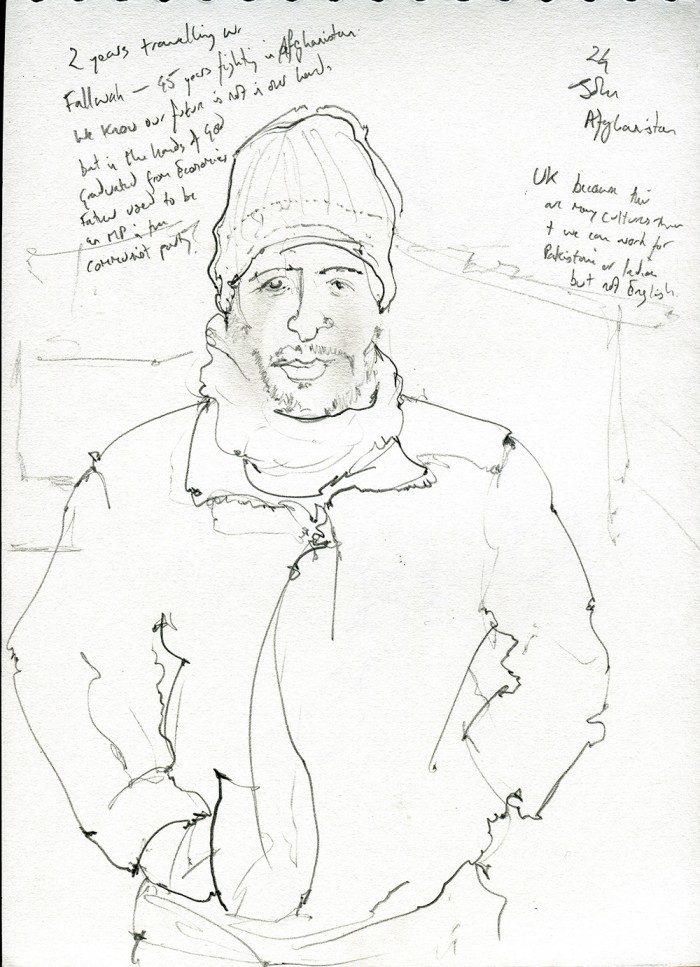 2 years travelling w
Fallowah – 45 years fighting in Afghanistan.
We know our future is not in our hands
but in the hands of God
Graduated from Economics
Father used to be
an MP in the
communist party.
24
John
Afghanistan
UK because there
are many cultures there
+ we can work for
Pakistani or Indian
but not English